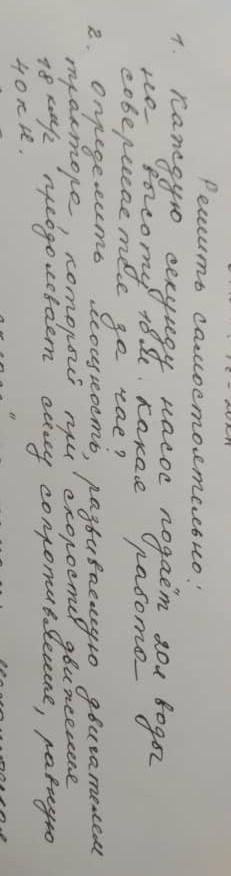 Решить самостоятельно!
1. Каждую секунду насос подаёт 20л воды
на высоту 10м. Какая работа
совершается за час?
2. Определить мощность, развиваемую двигателем
трактора, который при скорости движения
18 км/ч преодолевает силу сопротивления, равную
40 кН.